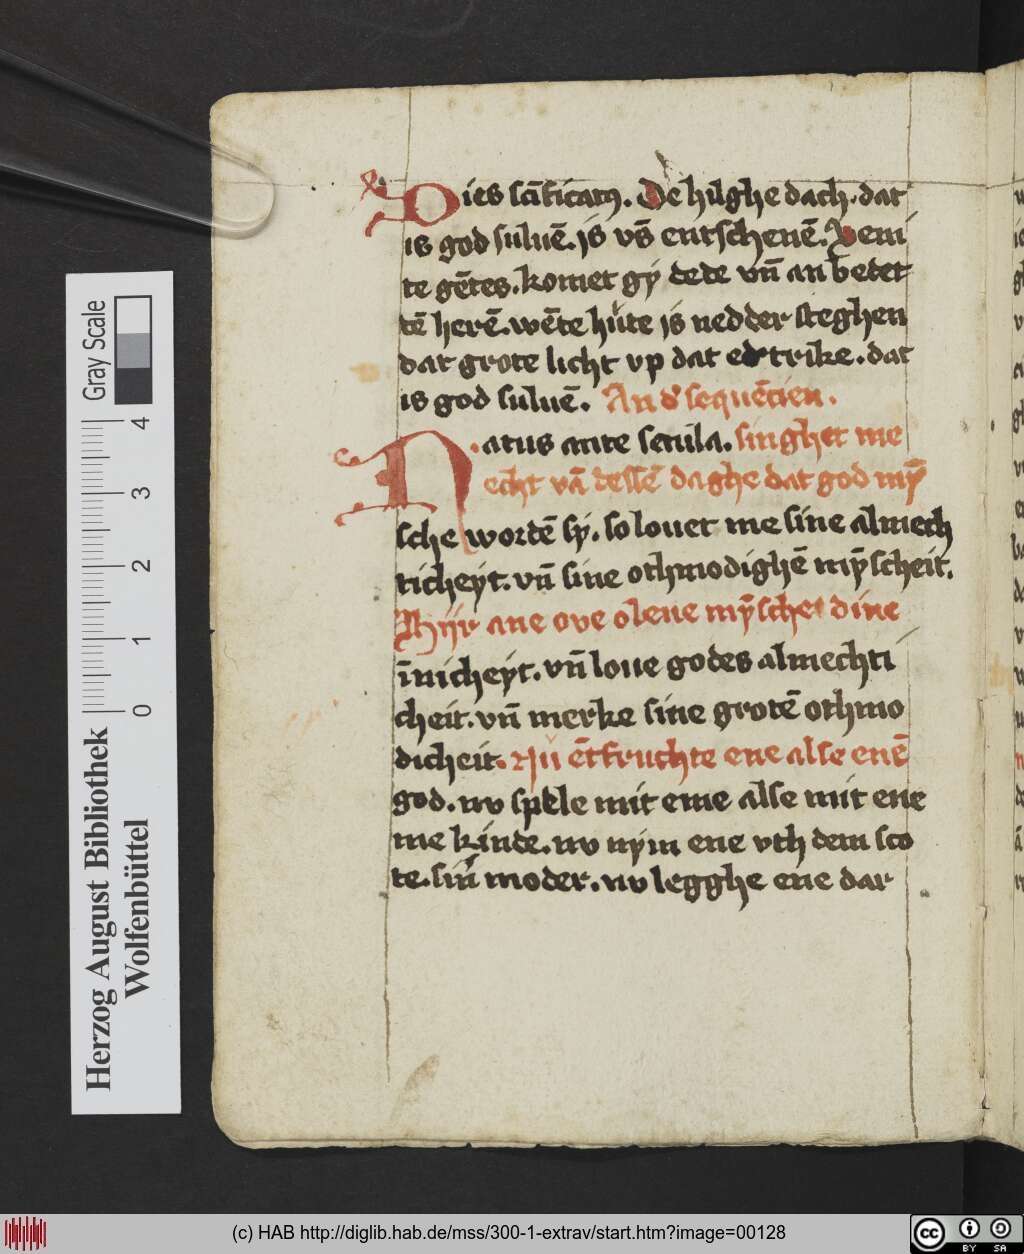 Dies scīficatꝰ. De hilghe dach. dat
is god suluē. is vs̄ entschenē. Veni
te gētes. komet gy dede vn̄ an bedet
tē herē. wēte hute is nedder steghen
dat grote licht vp dat edrtrike. dat
is god suluē. An dͤ sequēcien.
Natus ante secula. singhet me
echt vā dessē daghe dat god mȳ
sche wordē sy. so louet me sine almech
ticheyt. vn̄ sine othmodighē mȳscheit.
Hijr ane ove o leue mȳsche dine
īnicheyt. vn̄ loue godes almechti
cheit. vn̄ merke sine grotē othmo
dicheit. Nu ētfruchte ene alse enē
god. nv spele mit eme alse mit ene
me kinde. nv nym ene vth dem sco
te. sin̄ moder. nv legghe ene dar
Gray Scale
4
3
2
1
0
Herzog August Bibliothek
Wolfenbüttel
(c) HAB http://diglib.hab.de/mss/300-1-extrav/start.htm?image=00128
cc BY SA